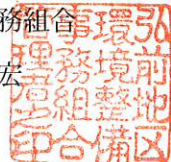 務組合
宏
弘前地区
環境整備
事務組合
管理者之印